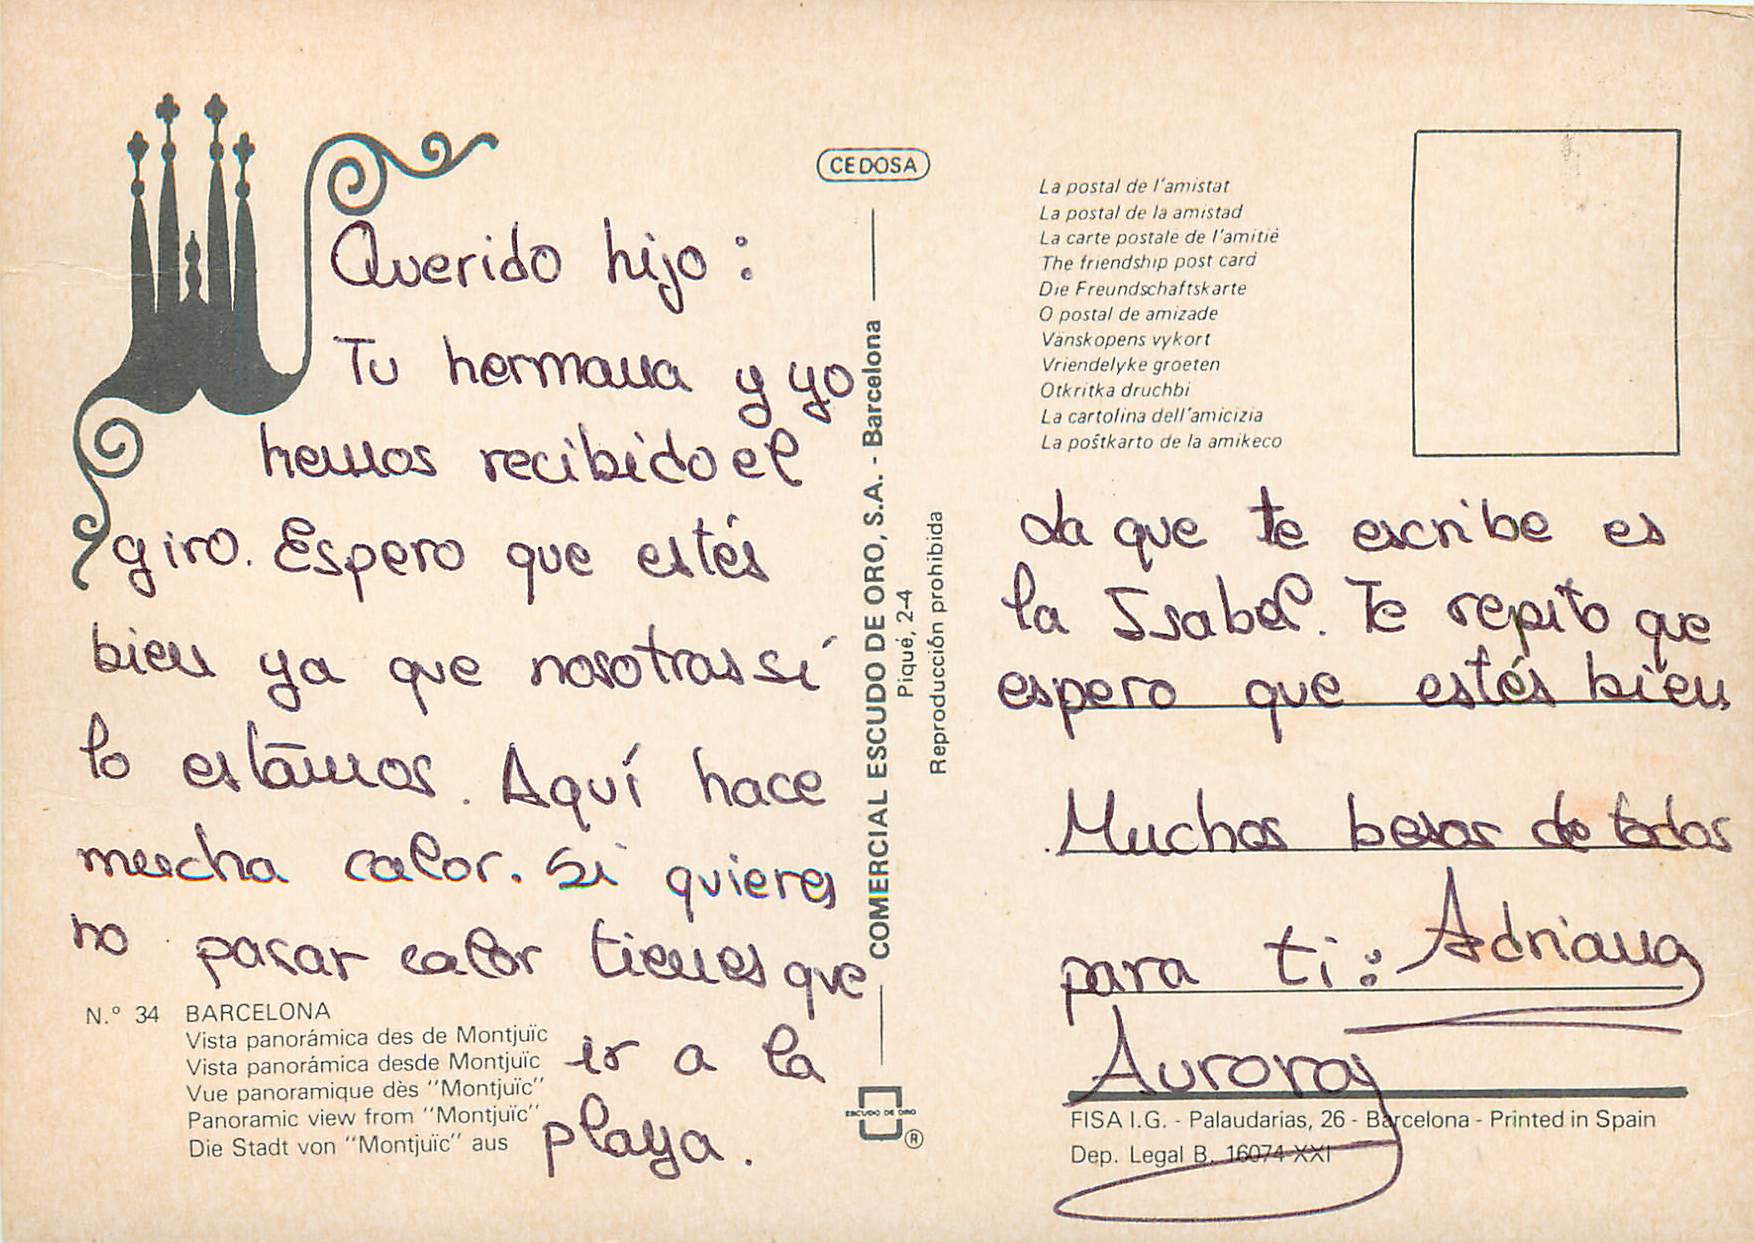 Querido hijo:
Tu hermana y yo
hemos recibido el
giro. Espero que estés
bien ya que nosotras sí
lo estámos. Aquí hace
mucha calor. Si quieres
no pasar calor tienes que
ir a la
playa.
N.° 34 BARCELONA
Vista panorámica des de Montjuïc
Vista panorámica desde Montjuïc
Vue panoramique dès "Montjuïc"
Panoramic view from "Montjuïc"
Die Stadt von "Montjuïc" aus
CEDOSA
COMERCIAL ESCUDO DE ORO, S.A. - Barcelona
Piqué, 2-4
Reproducción prohibida
ESCUDO DE ORO
®
La postal de l'amistat
La postal de la amistad
La carte postale de l'amitié
The friendship post card
Die Freundschaftskarte
O postal de amizade
Vänskopens vykort
Vriendelyke groeten
Otkritka druchbi
La cartolina dell'amicizia
La poŝtkarto de la amikeco
La que te escribe es
la Isabel. Te repito que
espero que estés bien
Muchos besos de todos
para ti: Adriana
Aurora
FISA I.G. - Palaudarias, 26 - Barcelona - Printed in Spain
Dep. Legal B. 16074-XXI